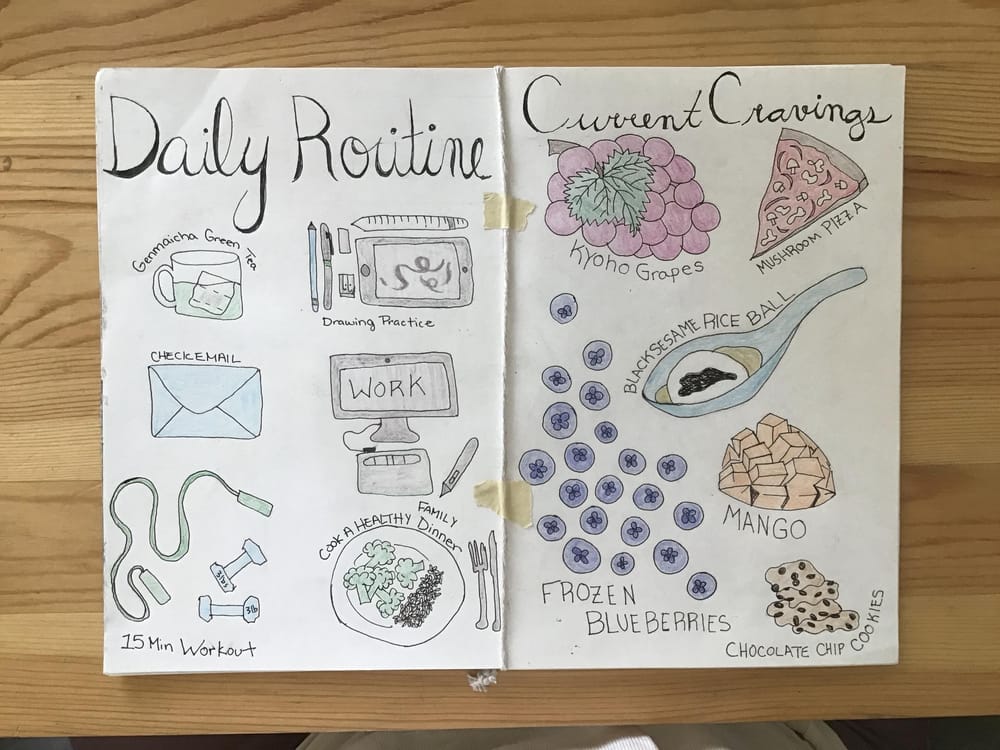 Daily Routine
Genmaicha Green Tea
Drawing Practice
CHECK EMAIL
WORK
3lbs
3lb
15 Min Workout
Cook A HEALTHY FAMILY Dinner
Current Cravings
Kyoho Grapes
MUSHROOM PIZZA
BLACK SESAME RICE BALL
MANGO
FROZEN
BLUEBERRIES
CHOCOLATE CHIP COOKIES